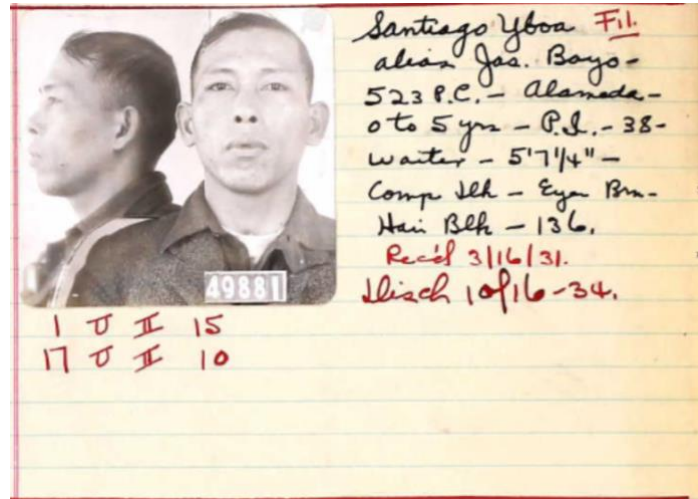 Santiago Yboa Fil.
alias Jas. Bayo -
523 P.C. - Alameda -
0 to 5 yrs - P.I. - 38 -
waiter - 5'7 1/4" -
Comp Dk - Eyes Brn -
Hair Blk - 136.
Rec'd 3/16/31.
Disch 10/16-34.
49881
1 U II 15
17 U II 10